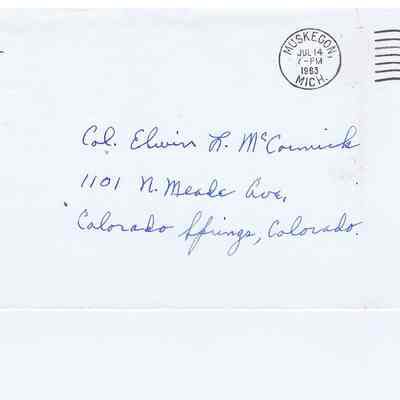 MUSKEGON,
JUL 14
7-PM
1963
MICH.
Col. Elwin L. McCormick
1101 N. Meade Ave,
Colorado Springs, Colorado.